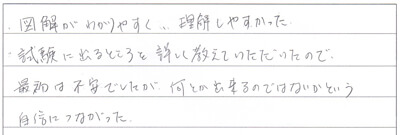 ・図解がわかりやすく、、理解しやすかった。
・試験に出るところを詳しく教えていただいたので、
最初は不安でしたが、何とか出来るのではないかという
自信につながった。